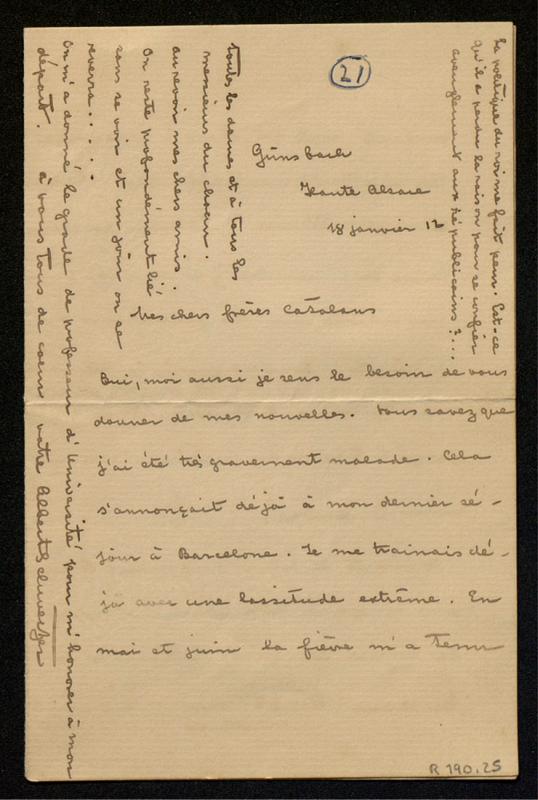 21
Günsbach
Haute Alsace
18 janvier 12
Mes chers frères Catalans
Oui, moi aussi je sens le besoin de vous
donner de mes nouvelles. Vous savez que
j'ai été très gravement malade. Cela
s'annonçait déjà à mon dernier sé-
jour à Barcelone. Je me trainais dé-
jà avec une lassitude extrême. En
mai et juin la fièvre m'a tenu
toutes les dames et à tous les
messieurs du choeur.
au revoir mes chers amis..
On reste profondément lié
sans se voir et un jour on se
reverra.....
On m'a donné le grade de professeur d'Université pour m'honorer à mon
départ. à vous tous de coeur votre Albert Schweitzer
La politique du roi me fait peur. Est-ce
qu'il a perdu la raison pour se confier
aveuglement aux républicains?...
R 190.25